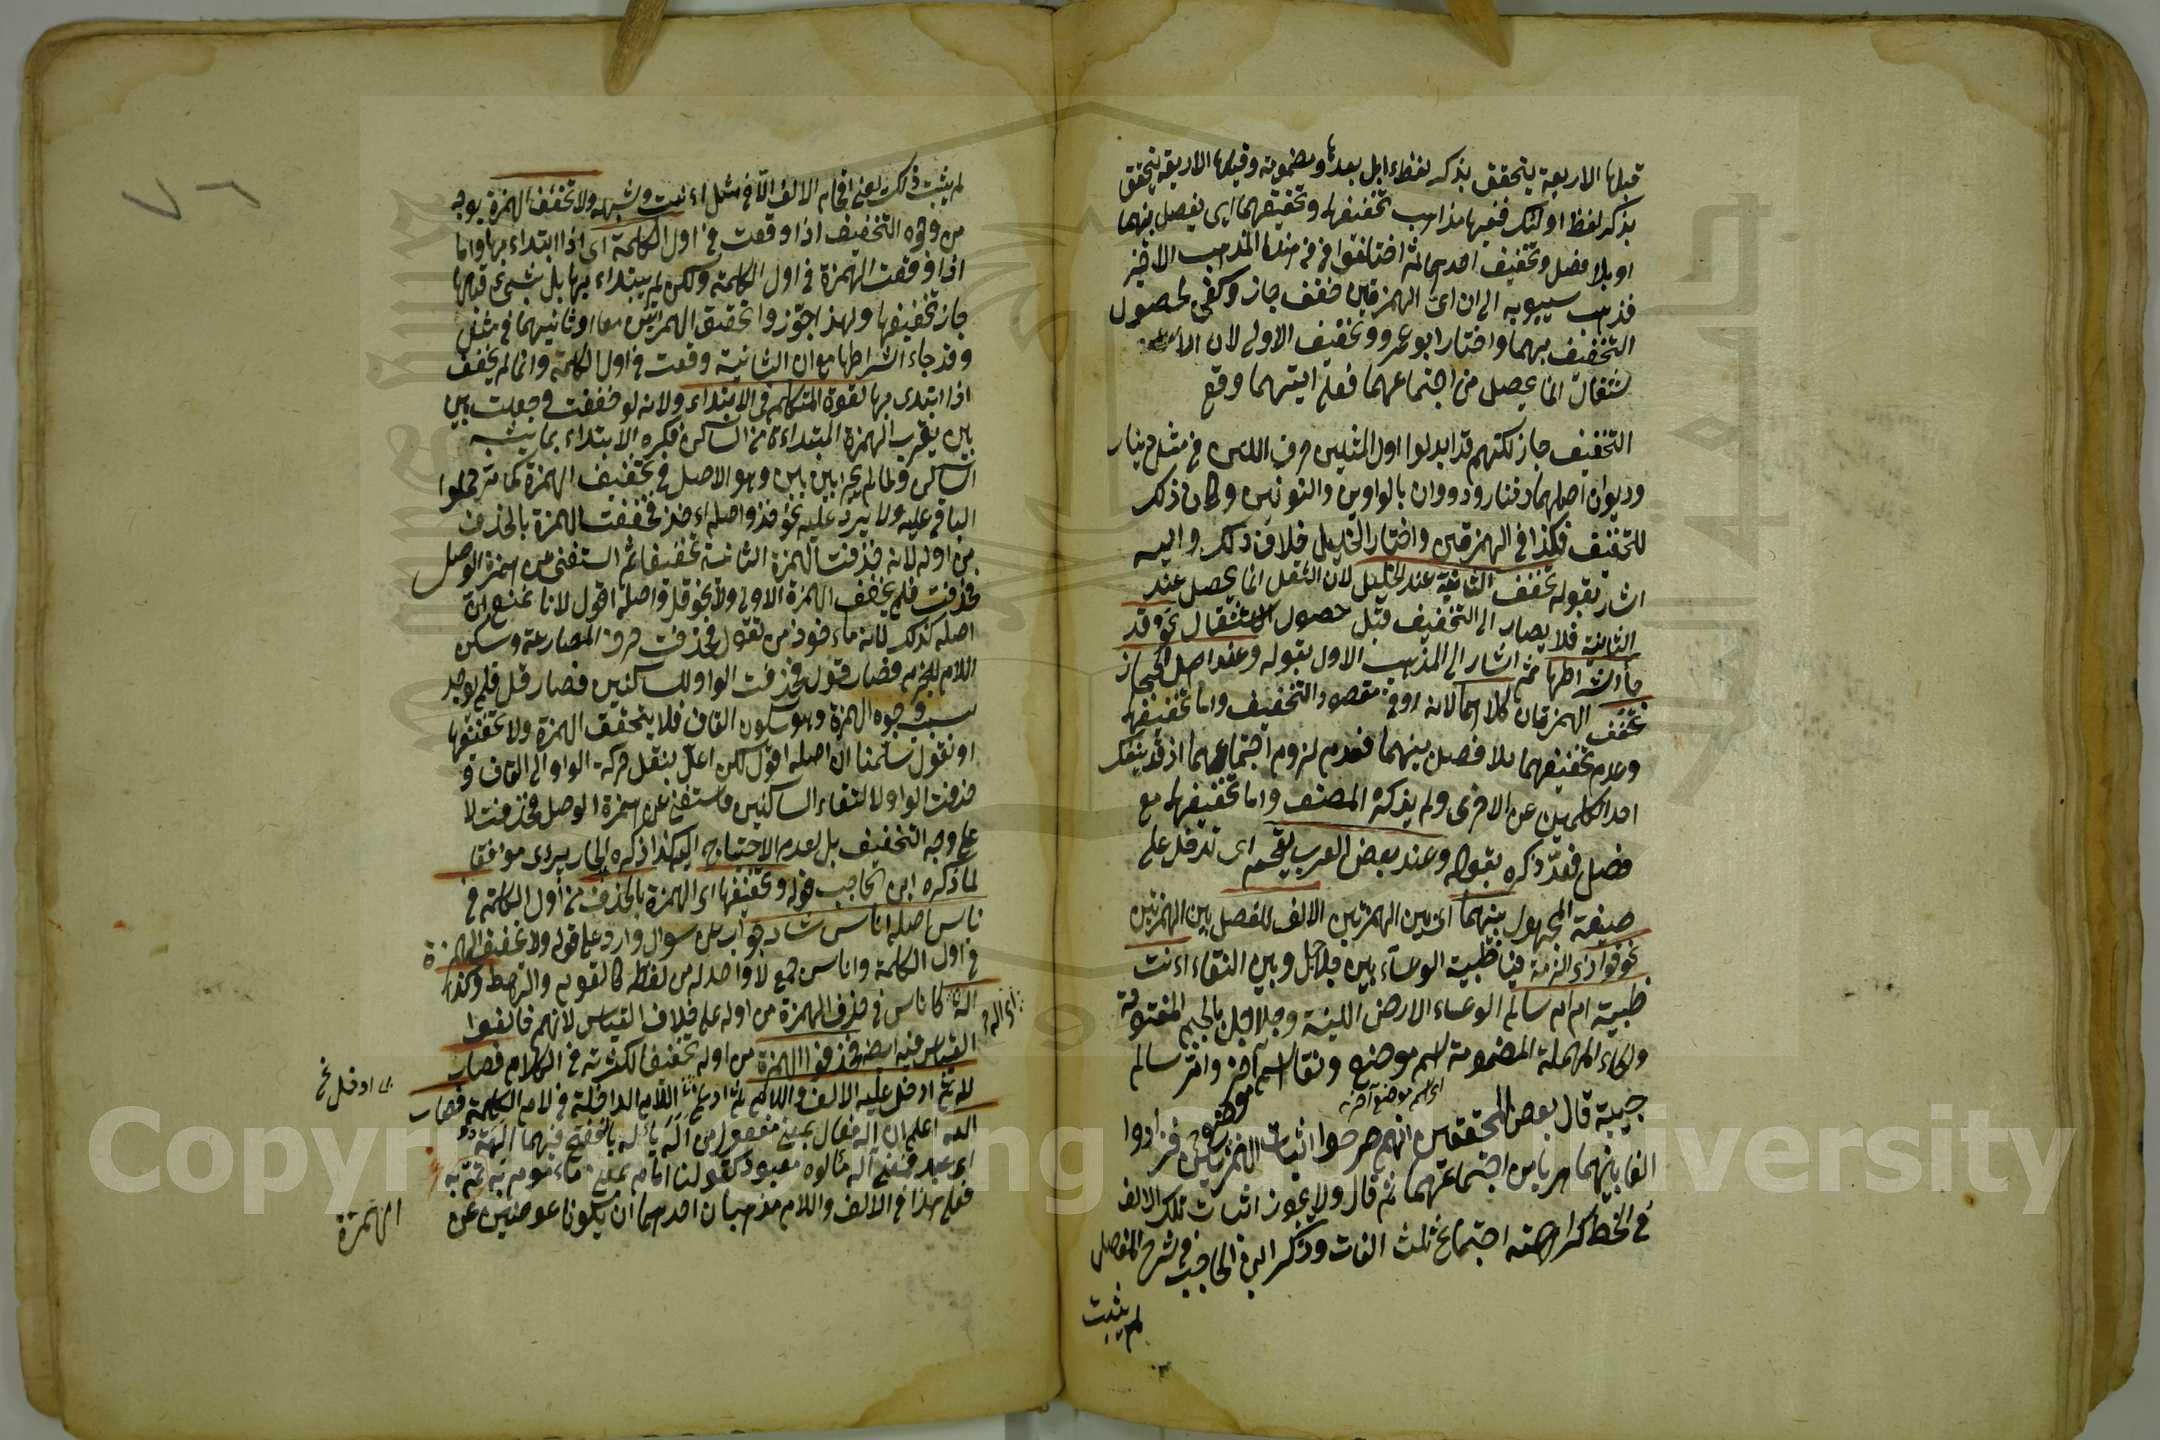 قبلها الاربعة يتحقق بذكر لفظ ابل بعدها ومضمومة وقبلها الاربعة يتحقق
بذكر لفظ اولئك ففيها مذاهب تخفيفها وتحقيقهما اى يفصل بينهما
او بلا فصل وتخفيف احديهما ثم اختلفوا فى هذا المذهب الاخير
فذهب سيبويه الى ان اى الهمزتين خفف جاز وكفى لحصول
التخفيف بهما واختار ابو عمرو وتخفيف الاولى لان الاس
ستثقال انما يحصل من اجتماعهما فعلى ايتهما وقع
التخفيف جاز لكنهم قد ابدلوا اول المثلين حرف اللين فى مثل دينار
وديوان اصلهما دننار ودووان بالواوين والنونين وكان ذلك
للتخفيف فكذا فى الهمزتين واختار الخليل خلاف ذلك واليه
اشار بقوله تخفف الثانية عند الخليل لان الثقل انما يحصل عند
الثانية فلا يصار الى التخفيف قبل حصول الاستثقال نحو فقد
جاء اشراطها ثم اشار الى المذهب الاول بقوله وعند اهل الحجاز
تخفف الهمزتان كلاهما لانه اوفى مقصود التخفيف واما تخفيفها
وعدم تخفيفهما بلا فصل بينهما فعدم لزوم اجتماعهما اذ قد ينفك
احد الكلمتين عن الاخرى ولم يذكره المصنف واما تخفيفها مع
فصل فقد ذكره بقوله وعند بعض العرب يقحم اى تدخل على
صيغة المجهول بينهما اى بين الهمزتين الالف للفصل بين الهمزتين
نحو قول ذى الرمة فيا ظبية الوعساء بين جلاجل وبين النقاء اءنت
ظبية ام ام سالم الوعساء الارض اللينة وجلاجل بالجيم المفتوحة
والحاء المهملة المضمومة اسم موضع ونقا اسم آخر وام سالم
اى اسم موضع آخر
حبيبة قال بعض المحققين انهم صرحوا اثبات الهمزتين فزادوا
الفا بينهما هربا من اجتماعهما ثم قال ولا يجوز اثبات تلك الالف
فى الخط كراهته اجتماع ثلث الفات وذكر ابن الحاجب فى شرح المفصل
لم يثبت
لم يثبت ذلك يعنى اقحام الالف الا فى مثل اءنت وشبهه ولا تخفف الهمزة بوجه
من وجوه التخفيف اذا وقعت فى اول الكلمة اى اذا ابتداء بها واما
اذا وقعت الهمزة فى اول الكلمة ولكن لم يبتداء بها بل بشىء قبلها
جاز تخفيفها ولهذا جوزوا تحقيق الهمزتين معا او ثانيهما فى مثل
وقد جاء اشراطها مع ان الثانية وقعت فى اول الكلمة وانما لم يخفف
اذا ابتدى بها لقوة المتكلم فى الابتداء ولانه لو خففت وجعلت بين
بين يقرب الهمزة المبتداءة من الساكن فكره الابتداء بما يشبه
الساكن ولما لم يجز بين بين وهو الاصل فى تخفيف الهمزة كما مر حملوا
الباقى عليه ولا يرد عليه نحو خذ واصله اءخذ فخففت الهمزة بالحذف
من اوله لانه حذفت الهمزة الثانية تخفيفا ثم استغنى عن همزة الوصل
فحذفت فلم يخفف الهمزة الاولى ولا نحو قل واصله اقول لانا نمنع ان
اصله كذلك لانه ماءخوذ من تقول فحذفت حرف المضارعة وسكن
اللام للجزم فصار قول فحذفت الواو للساكنين فصار قل فلم يوجد
سبب وجوه الهمزة وهو سكون القاف فلا يتحقق الهمزة ولا تخفيفها
او نقول سلمنا ان اصله اقول لكن اعل بنقل حركة الواو الى القاف و
حذفت الواو لالتقاء الساكنين واستغنى عن همزة الوصل فحذفت لا
على وجه التخفيف بل لعدم الاحتياج اليه كذا ذكره الجاربردى موافقا
لما ذكره ابن الحاجب قوله وتخفيفها اى الهمزة بالحذف من اول الكلمة فى
ناس اصله اناس شاذ جواب عن سوال وارد على قوله ولا تخفيف الهمزة
فى اول الكلمة واناس جمع لا واحد له من لفظه كالقوم والرهط وكذا
اله كاناس فى حذف الهمزة من اوله على خلاف القياس لانهم خالفوا
القياس فيه ايضه فحذفوا الهمزة من اوله تخفيفا لكثرته فى الكلام فصار
لاه ثم ادخل عليه الالف واللام ثم ادغم اللام الداخلة فى لام الكلمة فصار
ادخل نخ
الله اعلم ان اله فعال بمعنى مفعول من اله يأله بالفتح فيهما الهة
اى عبد فمعنى اله مألوه معبود كقولنا امام بمعنى ماءموم به ثم به
فعلى هذا فى الالف واللام مذهبان احدهما ان يكونا عوضين عن
الهمزة
Copyright King University